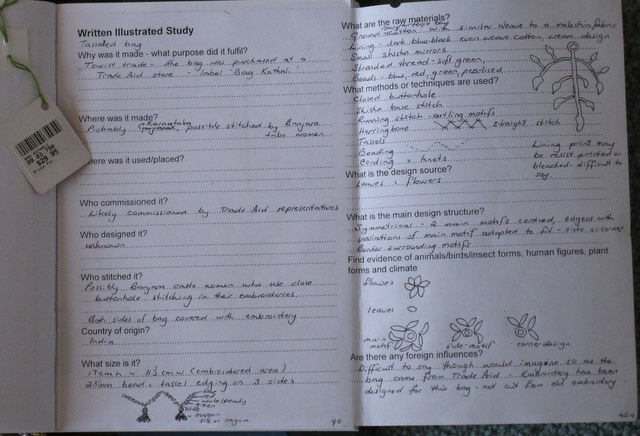 Written Illustrated Study
Tasseled bag
Why was it made - what purpose did it fulfil?
Tourist trade - the bag was purchased at a
Trade Aid store - label 'Bag Kathali'
Where was it made?
Probably possible stitched by Banjara
tribe women
here was it used/placed?
Who commissioned it?
Likely commissioned by Trade Aid representatives
Who designed it?
unknown
Who stitched it?
Possibly Banjara caste women who use close
buttonhole stitching in their embroideries
Both sides of bag covered with embroidery
Country of origin?
India
What size is it?
(embroidered area)
tassel edging on 3 sides
What are the raw materials?
with similar weave to a
Lining - dark blue-black even weave cotton, cream design
Small shisha mirrors
Stranded thread - soft green,
Beads - blue, red, green, pearlised
What methods or techniques are used?
Closed buttonhole
Shisha base stitch
Running stitch - outling motifs
Herringbone straight stitch
Tassels
Beading
Cording & knots
Lining print may
be resist printed or
bleached - difficult to
say.
What is the design source?
Leaves & flowers
What is the main design structure?
Symmetrical - 2 main motifs centred, edged with
variations of main motif adapted to fit - side & corner
Border surrounding motifs
Find evidence of animals/birds/insect forms, human figures, plant
forms and climate
flowers
leaves
main
motif
side motif
corner design
Are there any foreign influences?
Difficult to say, though would imagine so as the
bag came from Trade Aid - Embroidery has been
designed for this bag - not cut from old embroidery